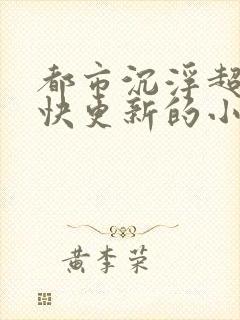 都市沉浮超
快更新的小
黄李荣